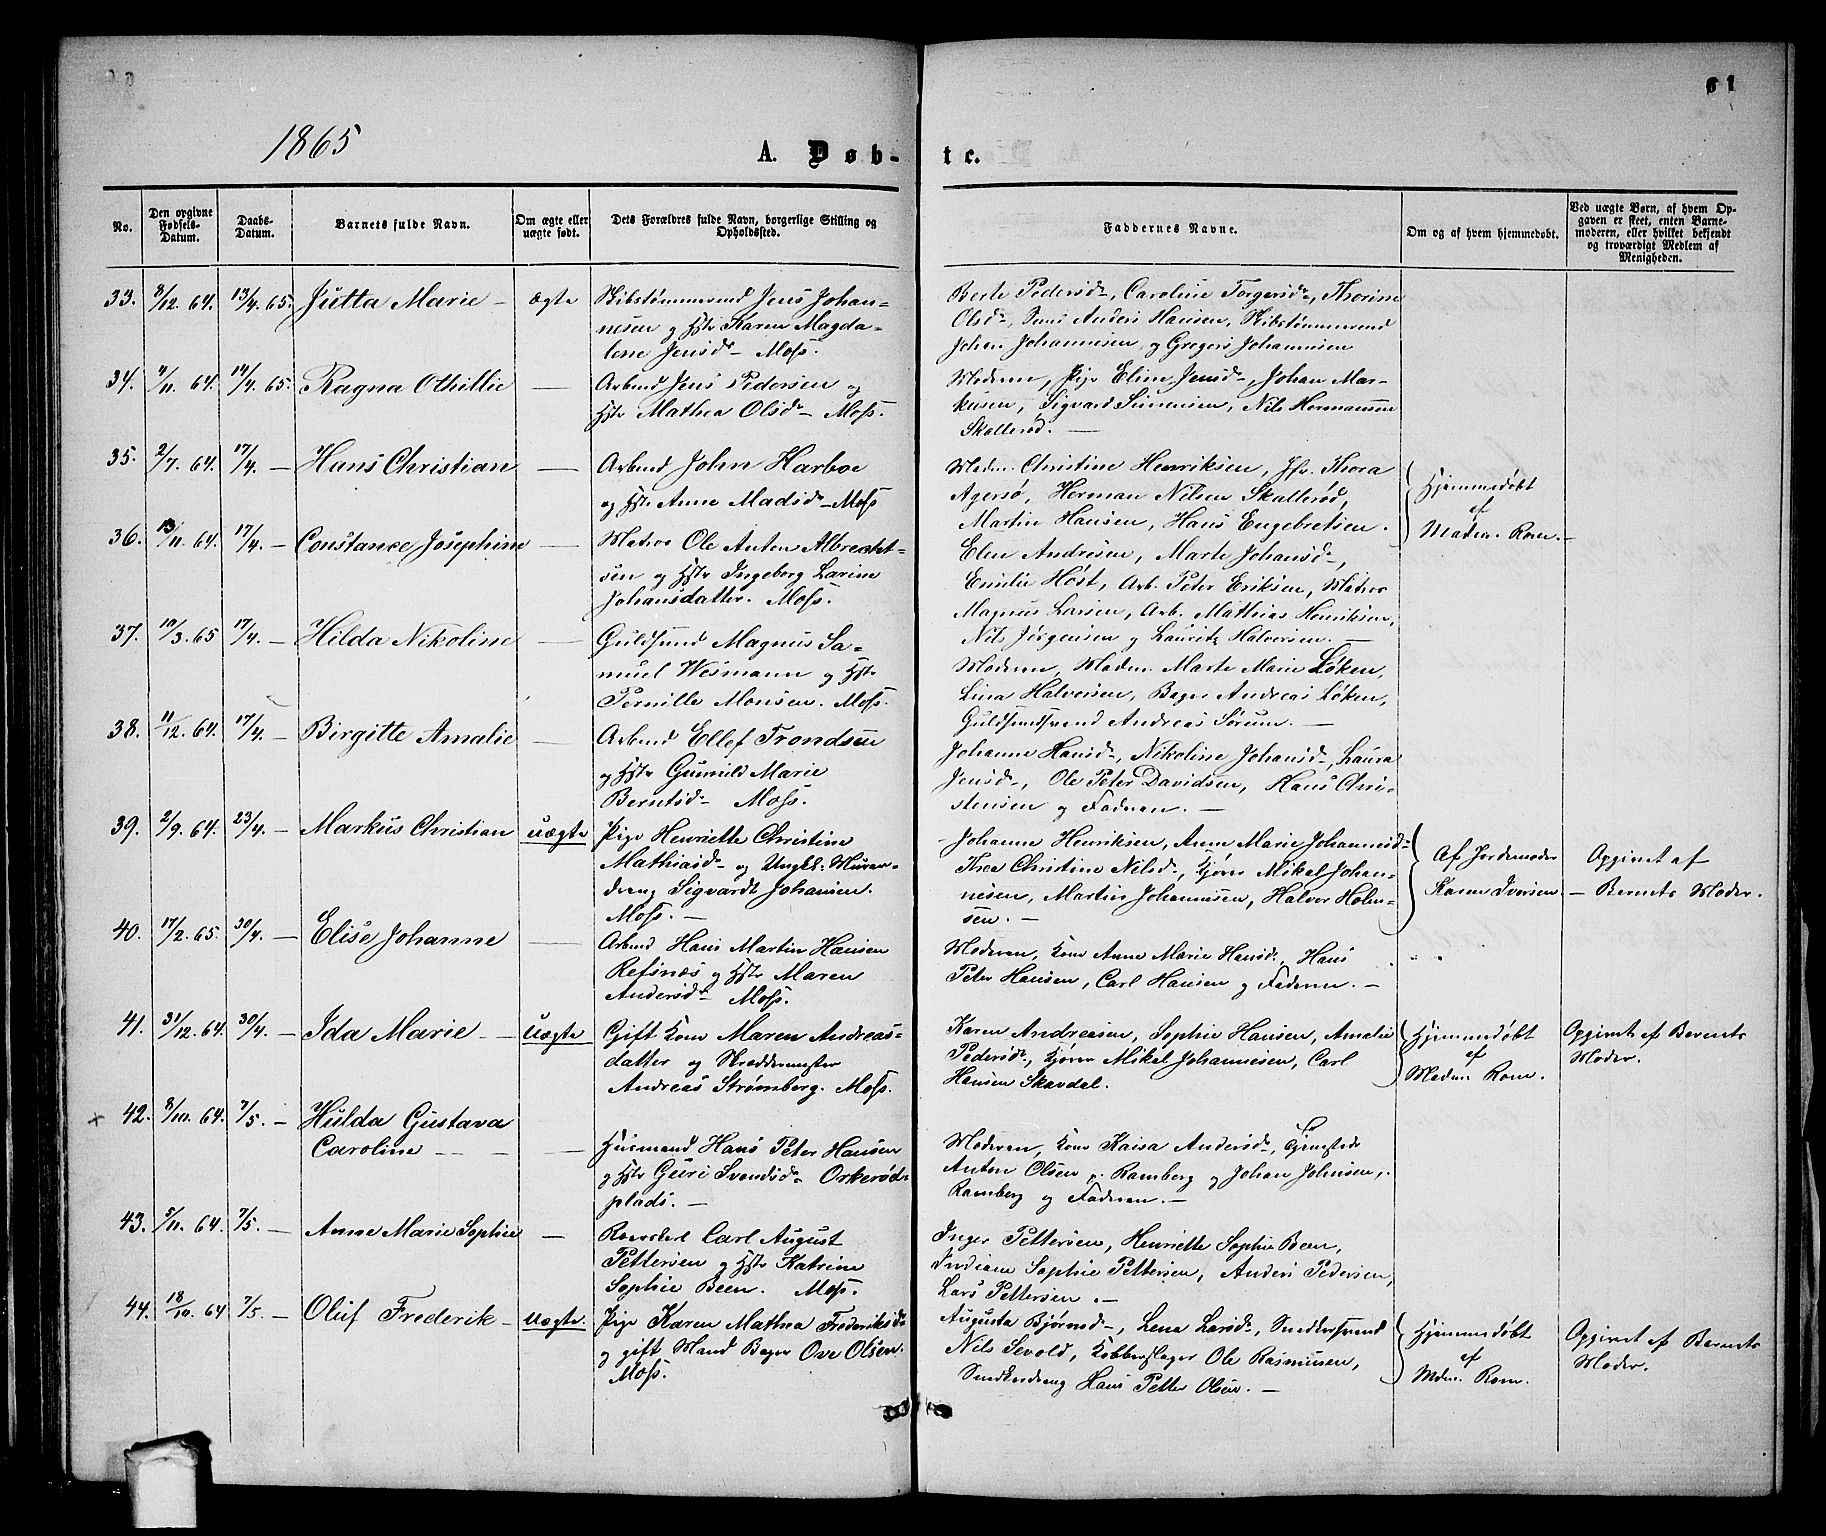 61
1865
A. Døb-
te.
No.
Den opgivne Fødsels-Datum.
Daabs-Datum.
Barnets fulde Navn.
Om ægte eller uægte født.
Dets Forældres fulde Navn, borgerlige Stilling og Opholdssted.
Faddernes Navne.
Om og af hvem hjemmedøbt.
Ved uægte Børn, af hvem Opgaven er skeet, enten Barnemoderen, eller hvilket bekjendt og troværdigt Medlem af Menigheden.
33. 8/12. 64. 13/4. 65. Jutta Marie – ægte
Skibstømmermd Jens Johan-
nesen og Hstr Karen Magda-
lene Jensdr – Moss.
Berte Pedersdr, Caroline Torgersdr, Thorine
Olsdr, Anders Hansen, Skibstømmermd
Johan Johannesen og Gregers Johannesen
34. 4/11. 64. 14/4. 65. Ragna Othillie —
Arbmd Jens Pedersen og
Hstr Mathea Olsdr – Moss.
Moderen, Pige Eline Jensdr, Johan Mar-
kusen, Sigvard Simensen, Nils Hermansen
Skallerød. —
35. 2/7. 64. 17/4. – Hans Christian —
Arbmd John Harboe
og Hstr Anne Madsdr – Moss
Madm. Christine Henriksen, Jfr. Thora
Agersø, Herman Nilsen Skallerød,
Martin Hansen, Hans Engebretsen.
Hjemmedøbt
af
Madm. Rom. –
36. 13/11. 64. 17/4. – Constance Josephine —
Matros Ole Anton Albrecht-
sen og Hstr Ingeborg Larine
Johansdatter. Moss.
Elen Andresen, Marte Johansdr,
Emilie Høst, Arb. Peter Eriksen, Matros
Magnus Larsen, Arb. Mathias Henriksen,
Nils Jørgensen og Lauritz Halvorsen. —
37. 10/3. 65 17/4. – Hilda Nikoline —
Guldsmd Magnus Sa-
muel Wesmann og Hstr
Pernille Monsen. Moss.
Moderen, Madm. Marte Marie Løken,
Lina Halvorsen, Bager Andreas Løken,
Guldsmdsvend Andreas Sørum. —
38. 11/12. 64. 17/4. – Birgitte Amalie —
Arbmd Ellef Trondsen
og Hstr Gunnild Marie
Berntsdr – Moss.
Johanne Hansdr, Nikoline Johansdr, Laura
Jensdr, Ole Peter Davidsen, Hans Chri-
stensen og Faderen. —
39. 2/9. 64. 23/4. – Markus Christian uægte
Pige Henriette Christine
Mathiasdr og Ungkl. Murer-
dreng Sigvardt Johansen.
Moss. —
Johanne Henriksen, Anne Marie Johannesdr
Thea Christine Nilsdr, Kjører Mikel Johan-
nesen, Martin Johannesen, Halvor Holm-
sen. —
Af Jordemoder
Karen Iversen.
Opgivet af
– Barnets Moder.
40. 17/2. 65. 30/4. – Elise Johanne —
Arbmd Hans Martin Hansen
Refsnæs og Hstr Maren
Andersdr – Moss.
Moderen, Kone Anne Marie Hansdr, Hans
Peter Hansen, Carl Hansen og Faderen. –
41. 31/12. 64. 30/4. – Ida Marie – uægte
Gift Kone Maren Andreas-
datter og Skræddermester
Andreas Strømberg. Moss.
Karen Andreasen, Sophie Hansen, Amalie
Pedersdr, Kjører Mikel Johannesen, Carl
Hansen Skavdal.
Hjemmedøbt
af
Madm. Rom.
Opgivet af Barnets
Moder.
x 42. 8/10. 64. 7/5. – Hulda Gustava
Caroline – – – —
Husmand Hans Peter Hansen
og Hstr Guri Svendsdr – Orkerød-
plads. —
Moderen, Kone Kaisa Andersdr, Tjenestedr
Anton Olsen p. Ramberg og Johan Johnsen,
Ramberg og Faderen. —
43. 5/11. 64. 7/5. – Anne Marie Sophie —
Carl August
Pettersen og Hstr Katrine
Sophie Been. Moss.
Inger Pettersen, Henriette Sophie Been,
Indiane Sophie Pettersen, Anders Pedersen,
Lars Pettersen. —
44. 18/10. 64 7/5. – Oluf Frederik – uægte.
Pige Karen Mathea Frederiksdr
og gift Mand Bager Ove Olsen.
Moss.
Augusta Bjørnsdr, Lena Larsdr, Snedkersvend
Nils Sevold, Kobberslager Ole Rasmusen,
Snedkerdreng Hans Petter Olsen. —
Hjemmedøbt
af
Mdm. Rom.
Opgivet af Barnets
Moder.